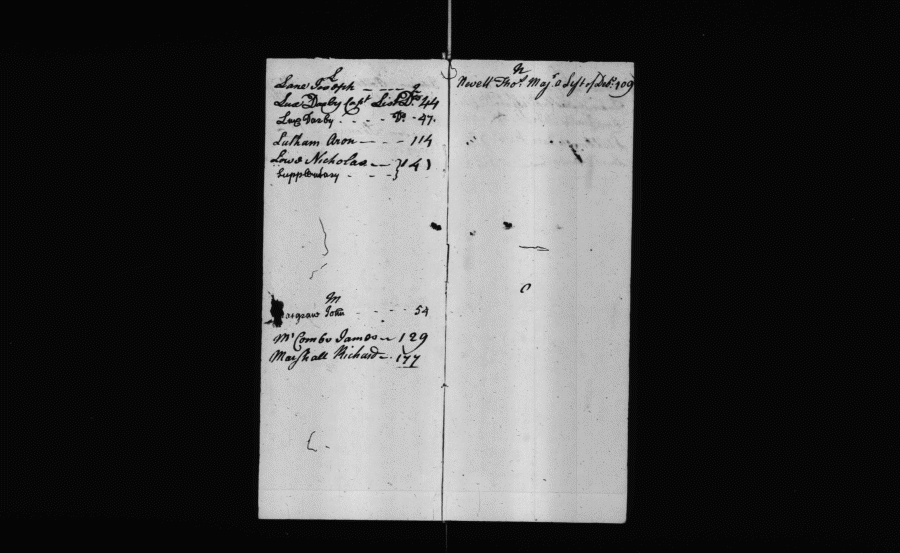 L
Lane Joseph — — — 2
Lux Darby Capt List Ds 44
Lux Darby - - - - Do - 47.
Latham Aron — - - - 114
Lowe Nicholas — — } 141
Supplementary - - - }
M
John - - - 54
Mc Combs James — 129
Marshall Richard — 177
N
Newell Thos Majr a List of Debts 109